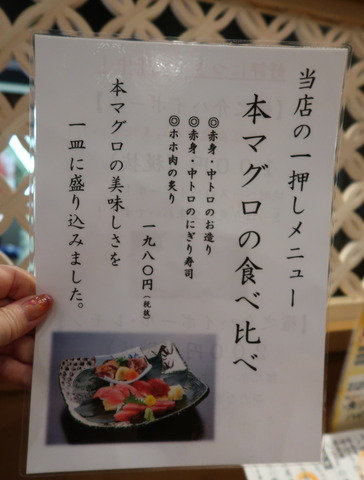 当店の一押しメニュー
本マグロの食べ比べ
◎赤身・中トロのお造り
◎赤身・中トロのにぎり寿司
◎ホホ肉の炙り
一九八〇円(税抜)
本マグロの美味しさを
一皿に盛り込みました。